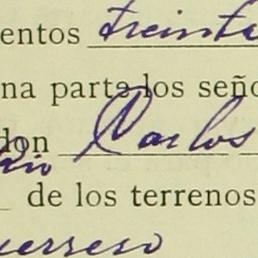 entos treinta
na parte los seño
don Carlos
de los terrenos